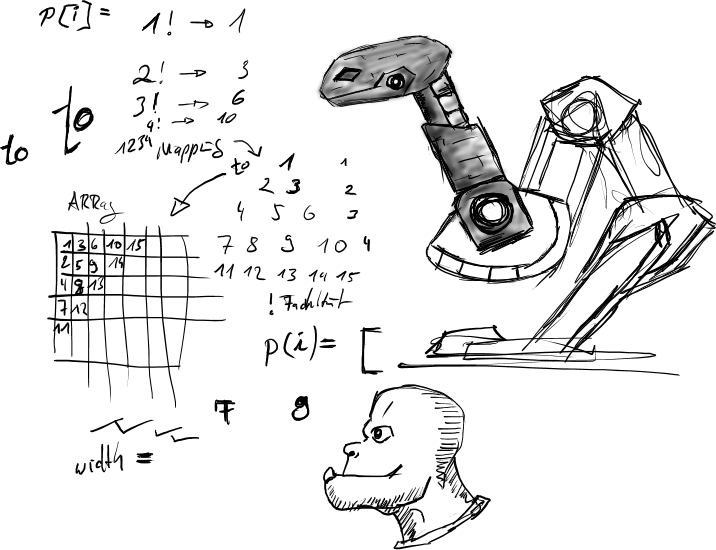 p[i]= 1! → 1
2! → 3
3! → 6
4! → 10
to
to
1234 Mapping to
1 1
2 3 2
4 5 6 3
7 8 9 10 4
11 12 13 14 15
! Fachltät
ARRay
1 3 6 10 15
2 5 9 14
4 8 13
7 12
11
p(i)= [
7 9
width =